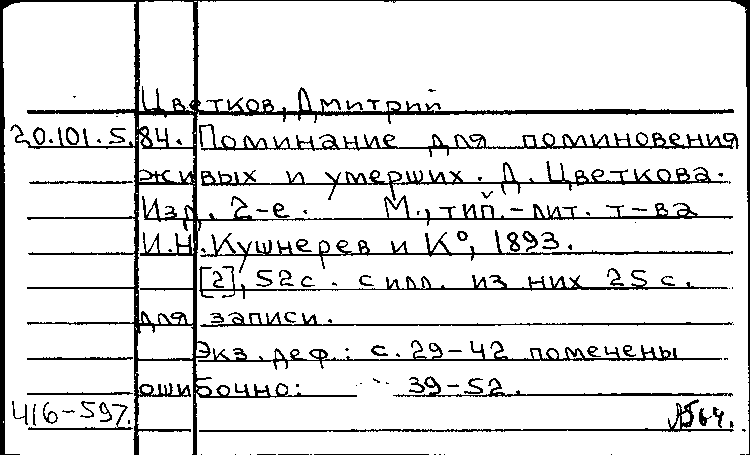 Цветков, Дмитрий
20.101.5.84. Поминание для поминовения
живых и умерших. Д. Цветкова.
Изд. 2-е. М., тип.-лит. т-ва
И.Н. Кушнерев и К°, 1893.
[2], 52 с. с илл. из них 25 с.
для записи.
Экз. деф.: с. 29-42 помечены
ошибочно: 39-52.
416-597.